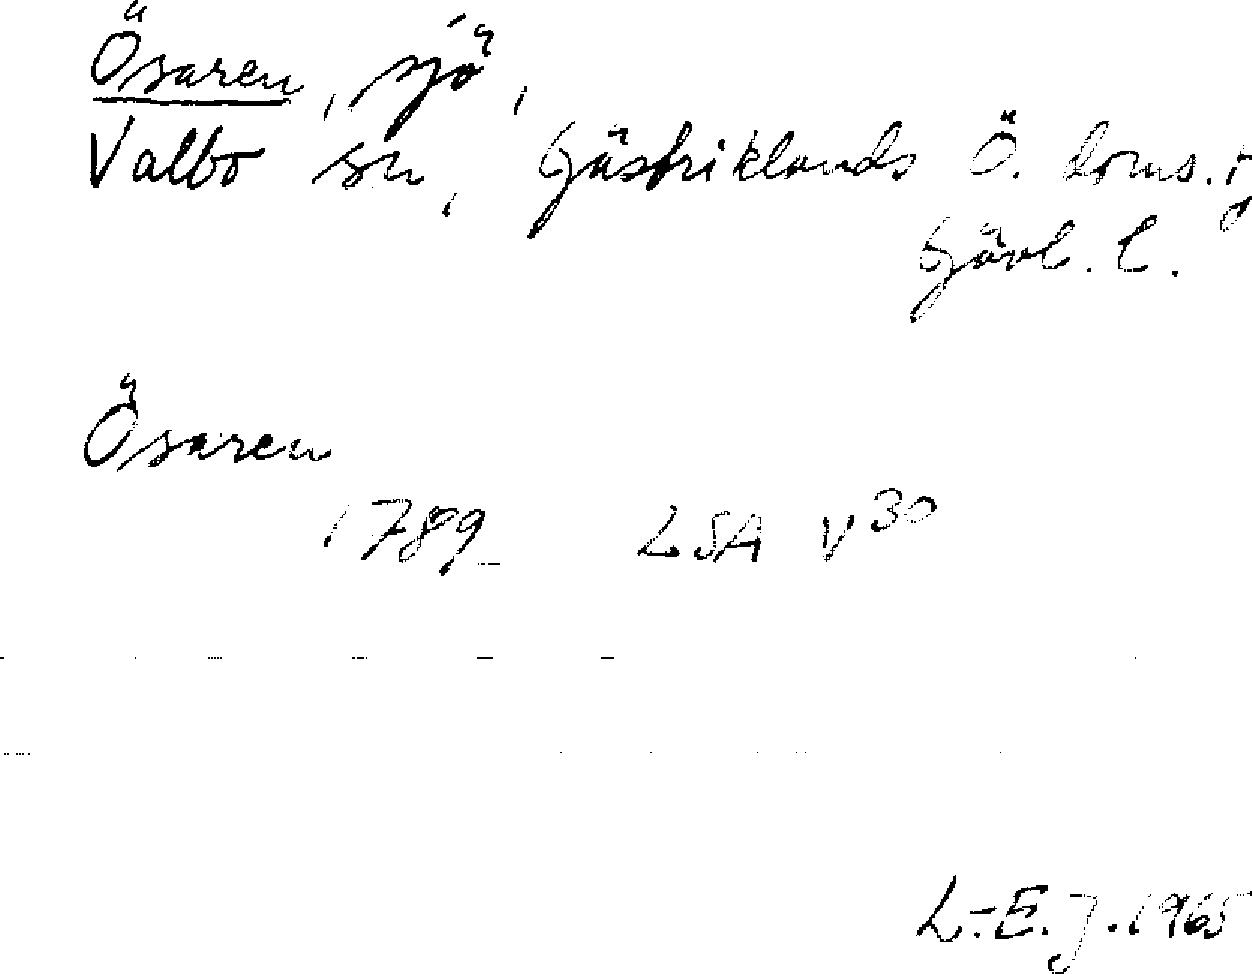 Ösaren, sjö,
Valbo sn, Gästriklands Ö. doms.
Gävl. l.
Ösaren
1789 LSA V30
L.-E. J. 1965